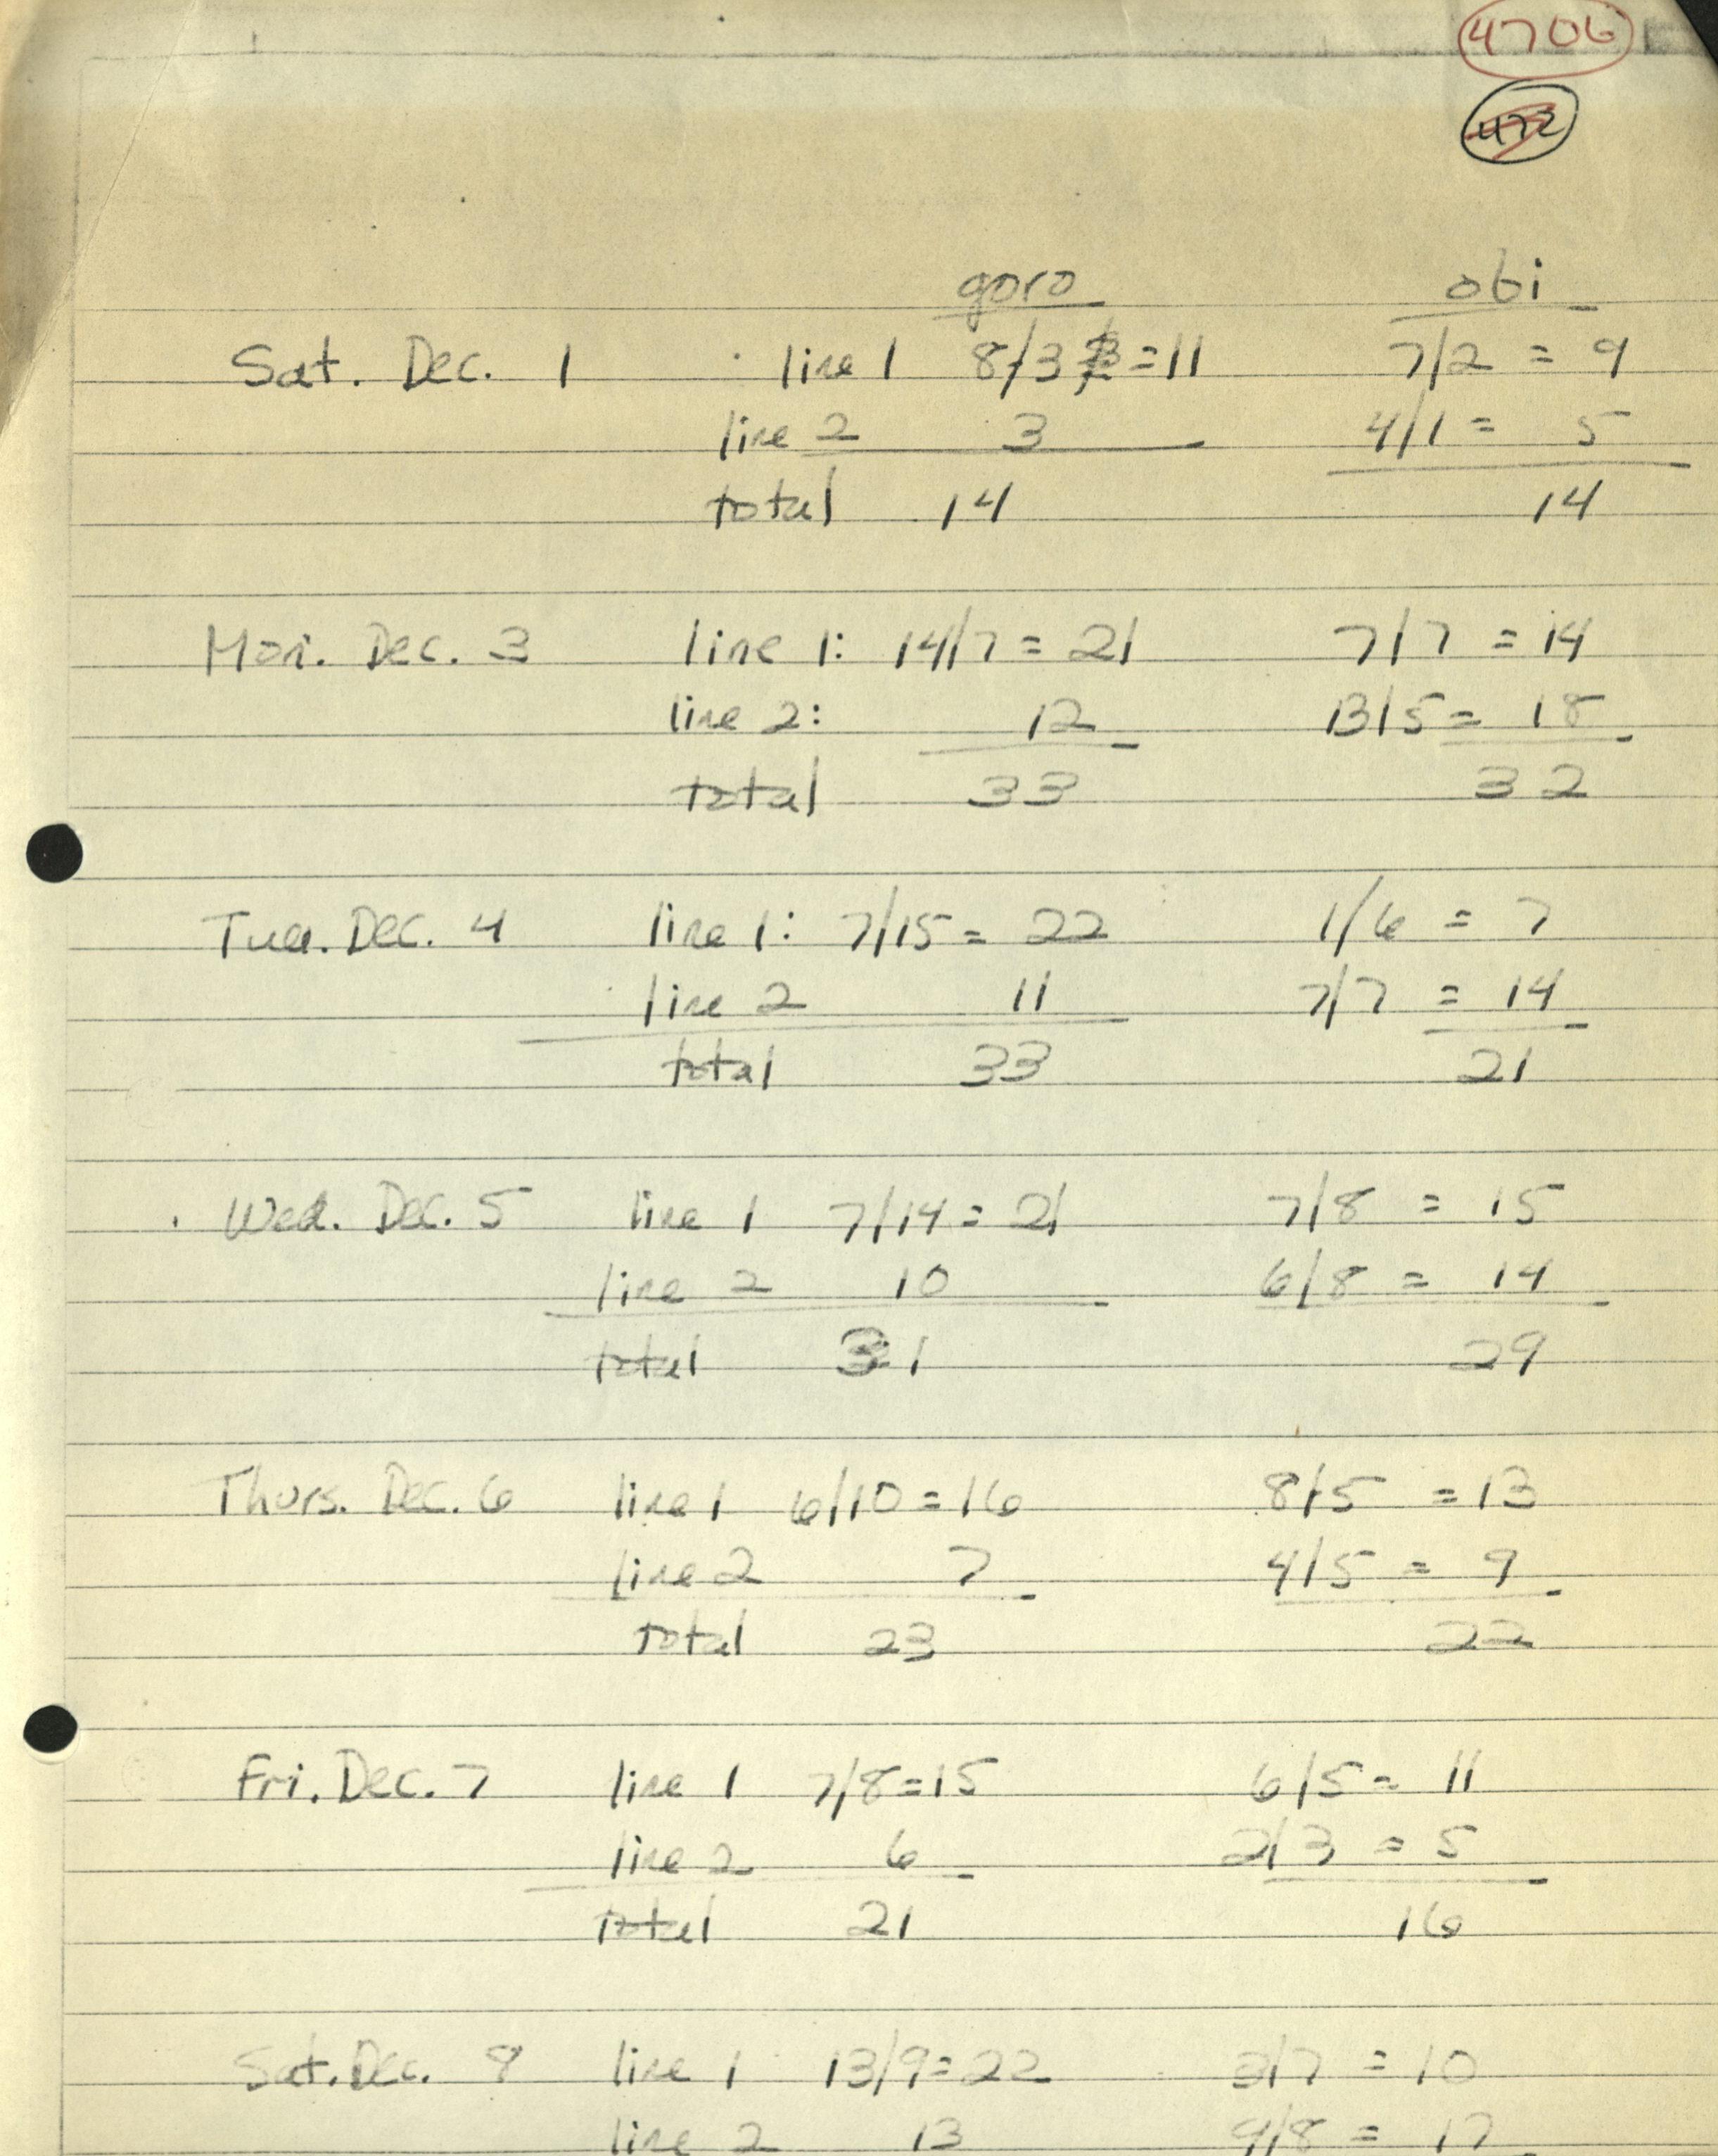 4706
472
goro obi
Sat. Dec. 1 line 1 8/3 =11 7/2 = 9
line 2 3 4/1 = 5
total 14 14
Mon. Dec. 3 line 1: 14/7 = 21 7/7 = 14
line 2: 12 13/5 = 18
total 33 32
Tue. Dec. 4 line 1: 7/15 = 22 1/6 = 7
line 2 11 7/7 = 14
total 33 21
Wed. Dec. 5 line 1 7/14 = 21 7/8 = 15
line 2 10 6/8 = 14
total 31 29
Thurs. Dec. 6 line 1 6/10 = 16 8/5 = 13
line 2 7 4/5 = 9
total 23 22
Fri. Dec. 7 line 1 7/8 = 15 6/5 = 11
line 2 6 2/3 = 5
total 21 16
Sat. Dec. 8 line 1 13/9 = 22 3/7 = 10
line 2 13 9/8 = 17